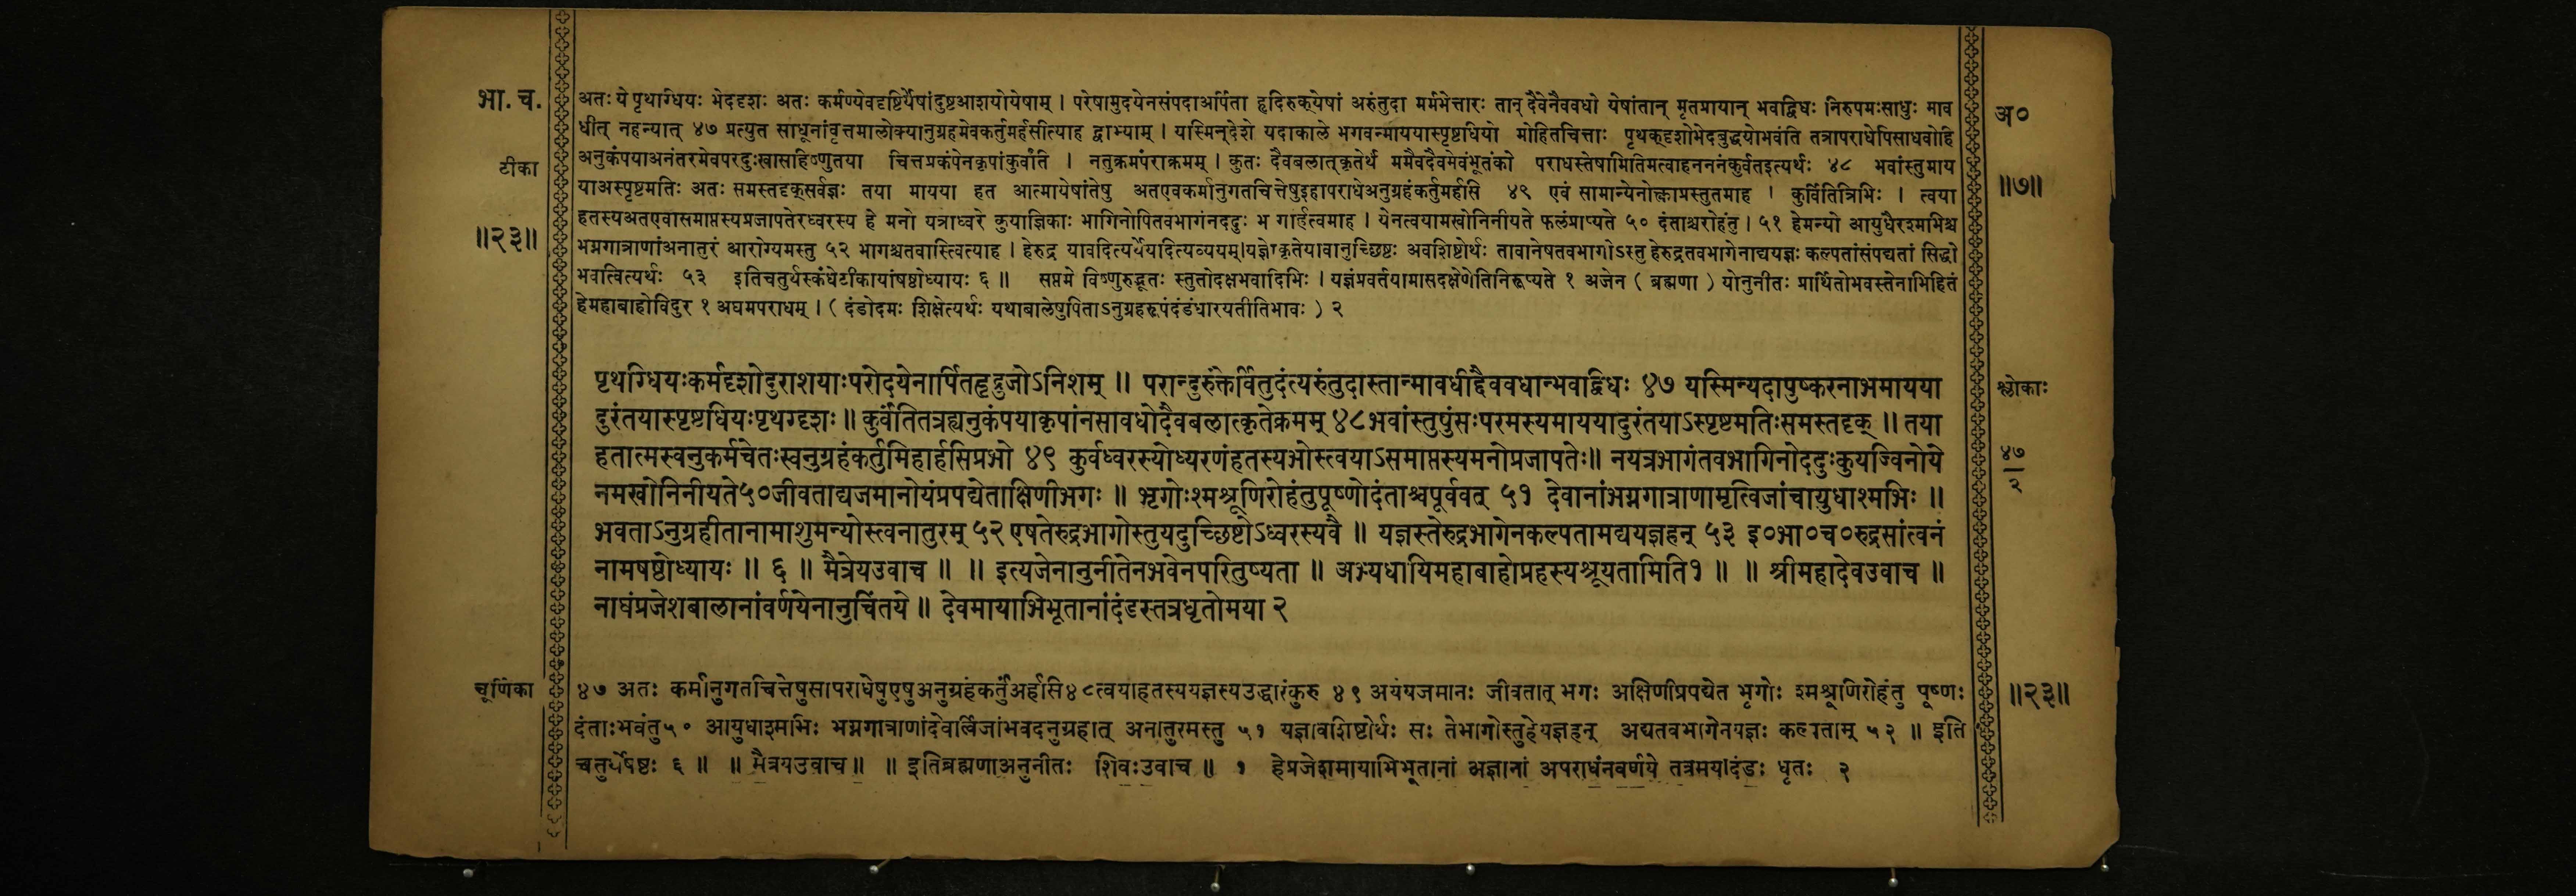 भा. च.
अतः ये पृथाग्धियः भेददृशः अतः कर्मण्येवदृष्टिर्येषांदुष्टआशयोयेषाम् । परेषामुदयेनसंपदाअर्पिता हृदिरुक्येषां अरुंतुदा मर्मभेत्तारः तान् दैवेनैववधो येषांतान् मृतप्रायान् भवद्विधः निरुपमःसाधुः माव
अ०
धीत् नहन्यात् ४७ प्रत्युत साधूनांवृत्तमालोक्यानुग्रहमेवकर्तुमर्हसीत्याह द्वाभ्याम् । यस्मिन्देशे यदाकाले भगवन्माययास्पृष्टधियो मोहितचित्ताः पृथक्दृशोभेदबुद्धयोभवंति तत्रापराधेपिसाधवोहि
टीका
अनुकंपयाअनंतरमेवपरदुःखासहिष्णुतया चित्तप्रकंपेनकृपांकुर्वांति । नतुक्रमंपराक्रमम् । कुतः दैवबलात्कृतेर्थे ममैवदैवमेवंभूतंको पराधस्तेषामितिमत्वाहननंनकुर्वतइत्यर्थः ४८ भवांस्तुमाय
॥७॥
याअस्पृष्टमतिः अतः समस्तदृक्सर्वज्ञः तया मायया हत आत्मायेषांतेषु अतएवकर्मानुगतचित्तेषुइहापराधेअनुग्रहंकर्तुमर्हसि ४९ एवं सामान्येनोक्त्वाप्रस्तुतमाह । कुर्वितित्रिभिः । त्वया
हतस्यअतएवासमाप्तस्यप्रजापतेरध्वरस्य हे मनो यत्राध्वरे कुयाज्ञिकाः भागिनोपितवभागंनददुः भ गार्हत्वमाह । येनत्वयामखोनिनीयते फलंप्राप्यते ५० दंताश्चरोहंतु । ५१ हेमन्यो आयुधैरश्मभिश्च
॥२३॥
भग्नगात्राणांअनातुरं आरोग्यमस्तु ५२ भागश्चतवास्त्वित्याह । हेरुद्र यावदित्यर्थेयादित्यव्ययम्।यज्ञेकृतेयावानुच्छिष्टः अवशिष्टोर्थः तावानेषतवभागोऽस्तु हेरुद्रतवभागेनाद्ययज्ञः कल्पतांसंपद्यतां सिद्धो
भवत्वित्यर्थः ५३ इतिचतुर्थस्कंधेटीकायांषष्ठोध्यायः ६ ॥ सप्तमे विष्णुरुद्भूतः स्तुतोदक्षभवादिभिः । यज्ञंप्रवर्तयामासदक्षेणेतिनिरूप्यते १ अजेन ( ब्रह्मणा ) योनुनीतः प्रार्थितोभवस्तेनाभिहितं
हेमहाबाहोविदुर १ अघमपराधम् । ( दंडोदमः शिक्षेत्यर्थः यथाबालेषुपिताऽनुग्रहरूपंदंडंधारयतीतिभावः ) २
पृथग्धियःकर्मदृशोदुराशयाःपरोदयेनार्पितहृद्रुजोऽनिशम् ॥ परान्दुरुक्तेर्वितुदंत्यरुंतुदास्तान्मावधीद्दैववधान्भवाद्विधः ४७ यस्मिन्यदापुष्करनाभमायया
श्लोकाः
दुरंतयास्पृष्टधियःपृथग्दृशः ॥ कुर्वंतितत्रह्यनुकंपयाकृपांनसावधोदैवबलात्कृतेक्रमम् ४८भवांस्तुपुंसःपरमस्यमाययादुरंतयाऽस्पृष्टमतिःसमस्तदृक् ॥ तया
हतात्मस्वनुकर्मचेतःस्वनुग्रहंकर्तुमिहार्हसिप्रभो ४९ कुर्वध्वरस्योध्यरणंहतस्यभोस्त्वयाऽसमाप्तस्यमनोप्रजापतेः॥ नयत्रभागंतवभागिनोददुःकुयज्विनोये
४७
२
नमखोनिनीयते५०जीवताद्यजमानोयंप्रपद्येताक्षिणीभगः ॥ भृगोःश्मश्रूणिरोहंतुपूष्णोदंताश्चपूर्ववत् ५१ देवानांभग्नगात्राणामृत्विजांचायुधाश्मभिः ॥
भवताऽनुग्रहीतानामाशुमन्योस्त्वनातुरम् ५२ एषतेरुद्रभागोस्तुयदुच्छिष्टोऽध्वरस्यवै ॥ यज्ञस्तेरुद्रभागेनकल्पतामद्ययज्ञहन् ५३ इ०भा०च०रुद्रसांत्वनं
नामषष्ठोध्यायः ॥ ६ ॥ मैत्रेयउवाच ॥ ॥ इत्यजेनानुनीतेनभवेनपरितुष्यता ॥ अभ्यधायिमहाबाहोप्रहस्यश्रूयतामिति१ ॥ ॥ श्रीमहादेवउवाच ॥
नाघंप्रजेशबालानांवर्णयेनानुचिंतये ॥ देवमायाभिभूतानांदंडस्तत्रधृतोमया २
चूर्णिका
४७ अतः कर्मानुगतचित्तेषुसापराधेषुएषुअनुग्रहंकर्तुंअर्हसि४८त्वयाहतस्ययज्ञस्यउद्धारंकुरु ४९ अयंयजमानः जीवतात् भगः अक्षिणीप्रपद्येत भृगोः श्मश्रूणिरोहंतु पूष्णः
॥२३॥
दंताःभवंतु५० आयुधाश्मभिः भग्नगात्राणांदेवर्त्विजांभवदनुग्रहात् अनातुरमस्तु ५१ यज्ञावशिष्टोर्थः सः तेभागोस्तुहेयज्ञहन् अद्यतवभागेनयज्ञः कल्पताम् ५२ ॥ इति
चतुर्थेषष्ठः ६ ॥ ॥ मैत्रेयउवाच ॥ ॥ इतिब्रह्मणाअनुनीतः शिवःउवाच ॥ १ हेप्रजेशमायाभिभूतानां अज्ञानां अपराधंनवर्णये तत्रमयादंडः धृतः २